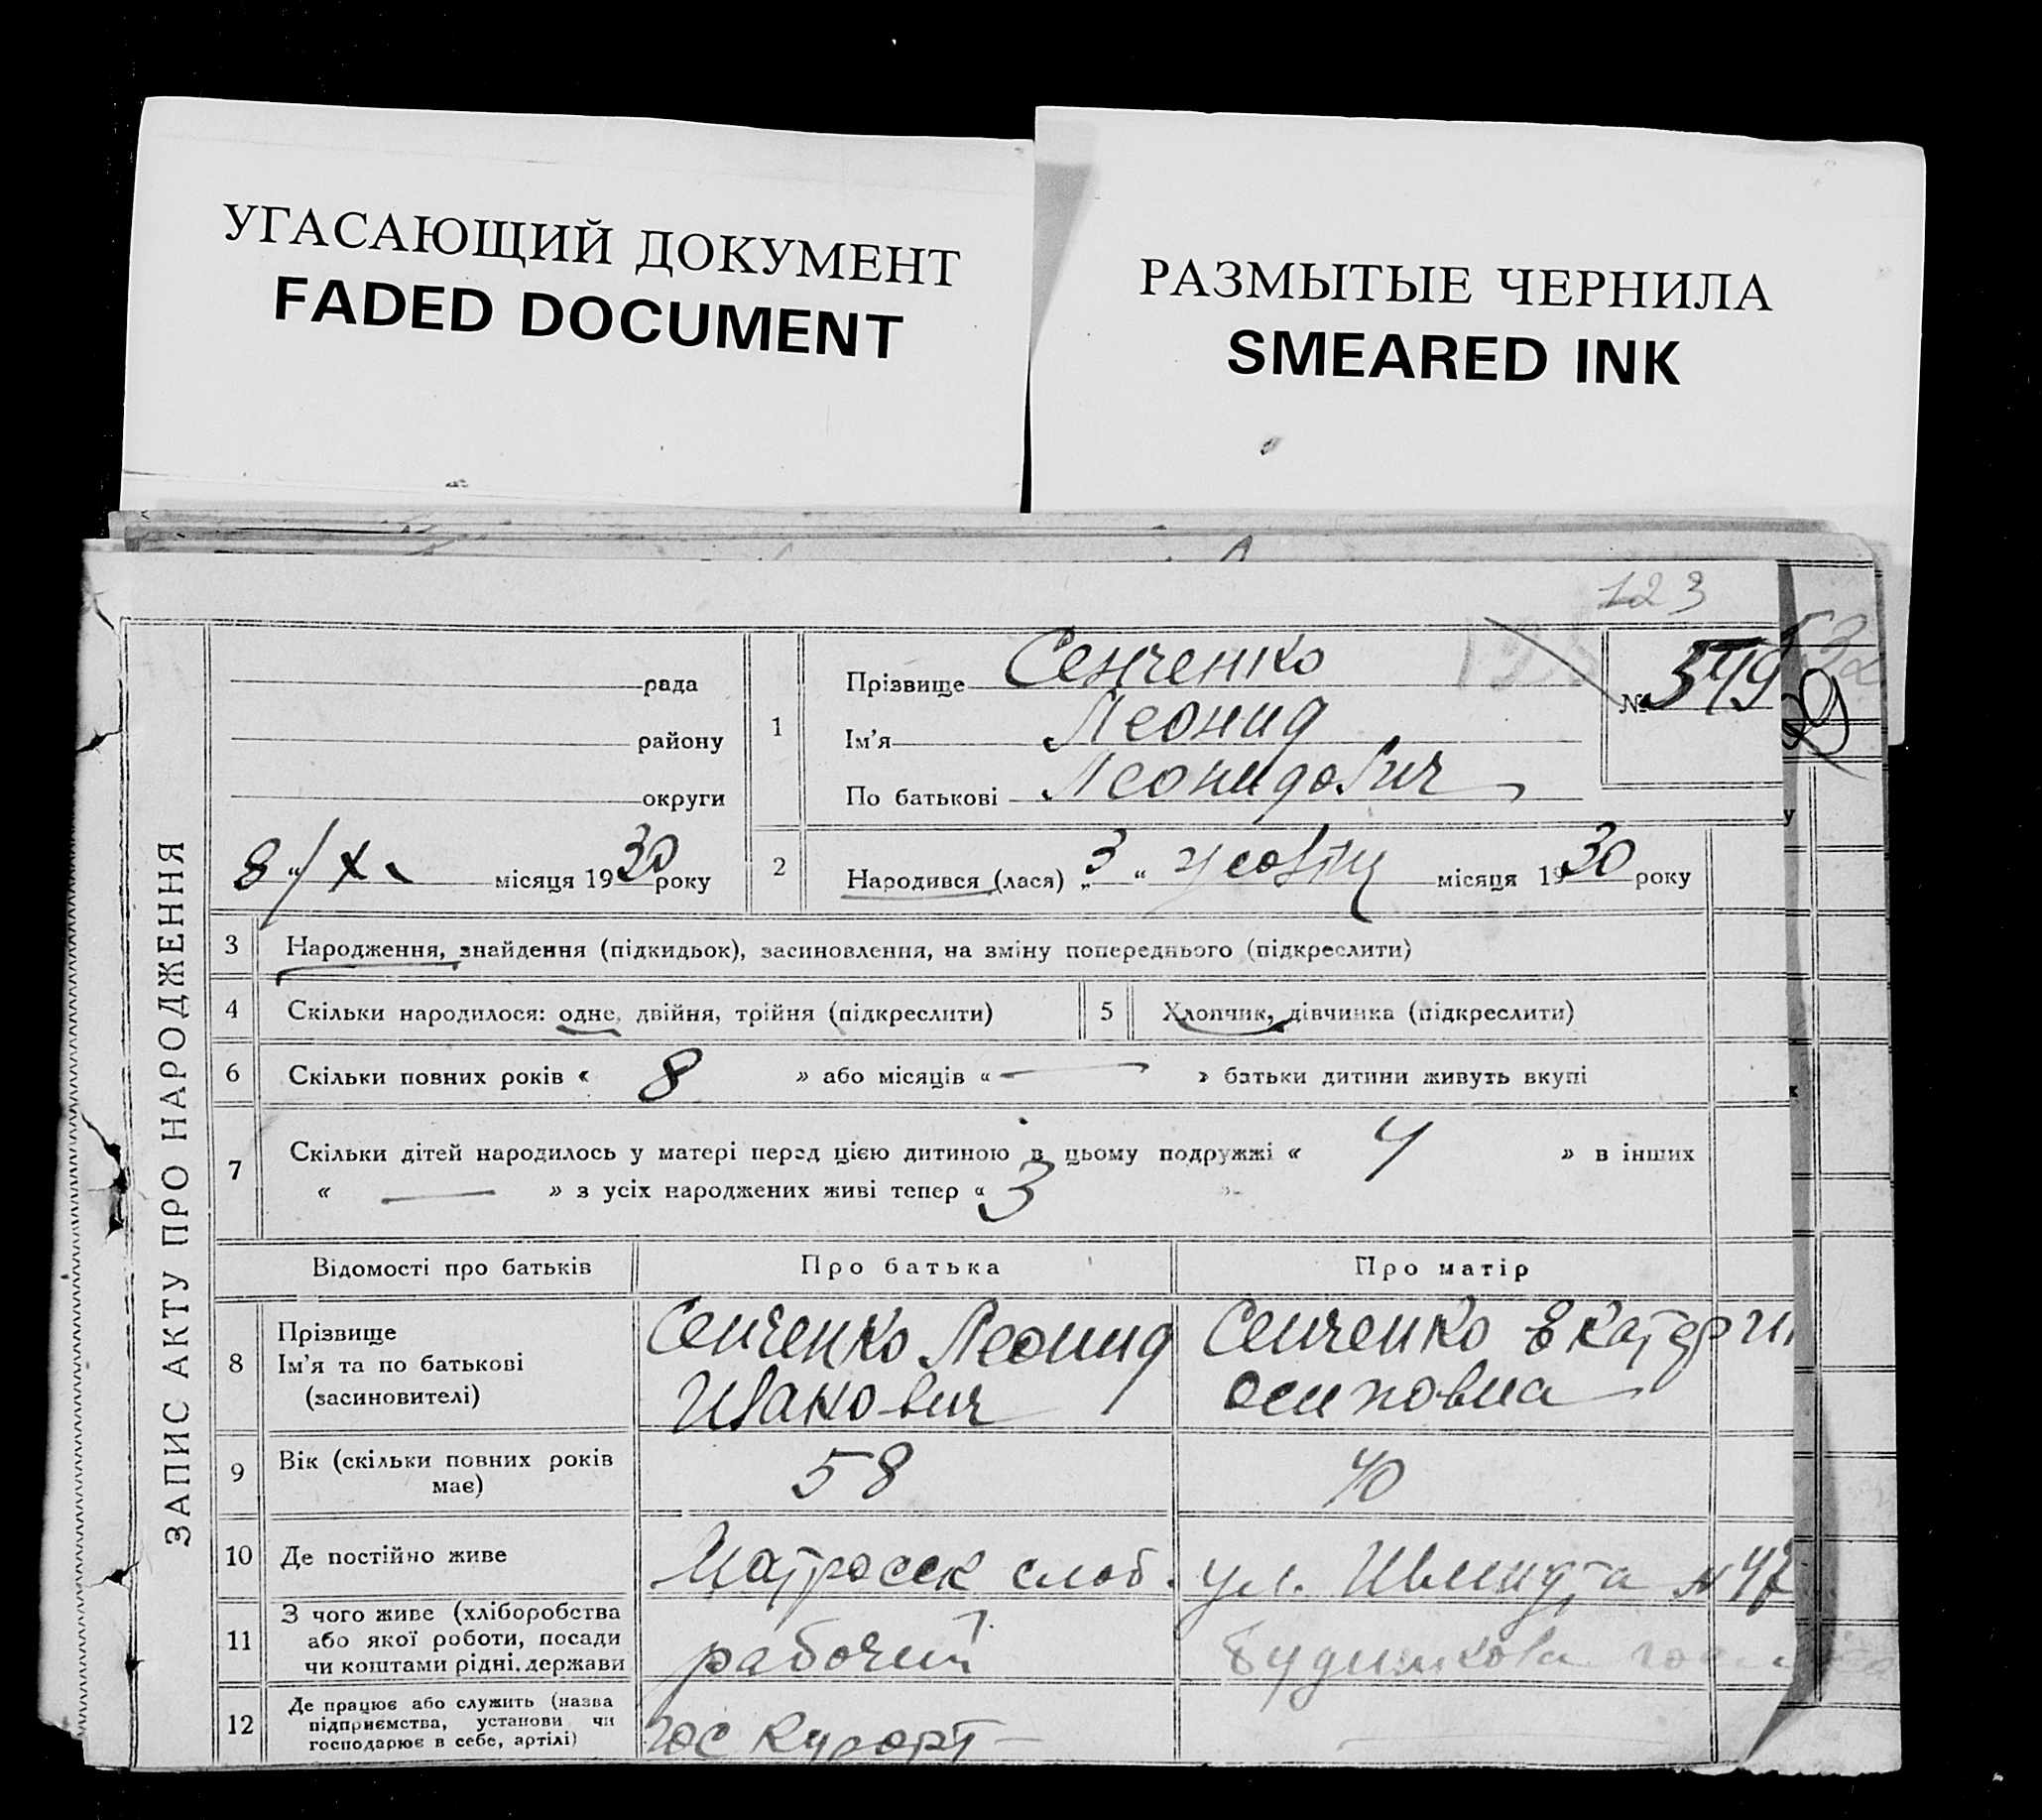 УГАСАЮЩИЙ ДОКУМЕНТ
FADED DOCUMENT
РАЗМЫТЫЕ ЧЕРНИЛА
SMEARED INK
123
ЗАПИС АКТУ ПРО НАРОДЖЕННЯ
рада
району
округи
8/X місяця 1930 року
1
Прізвище Сенченко
Ім'я Леонид
По батькові Леонидович
№ 549
2 Народився (лася) „3“ жовтц місяця 1930 року
3 Народження, знайдення (підкидьок), засиновлення, на зміну попереднього (підкреслити)
4 Скільки народилося: одне, двійня, трійня (підкреслити) 5 Хлопчик, дівчинка (підкреслити)
6 Скільки повних років « 8 » або місяців « — » батьки дитини живуть вкупі
7 Скільки дітей народилось у матері перед цією дитиною в цьому подружжі « 4 » в інших
« — » з усіх народжених живі тепер « 3 »
Відомості про батьків Про батька Про матір
8 Прізвище
Ім'я та по батькові
(засиновителі)
Сенченко Леонид
Иванович
Сенченко Екатерин
Осиповна
9 Вік (скільки повних років
має)
58 40
10 Де постійно живе Матросск слоб. ул. №47
11 З чого живе (хліборобства
або якої роботи, посади
чи коштами рідні, держави
рабочий
12 Де працює або служить (назва
підприємства, установи чи
господарює в себе, артілі)
Гос Курорт —